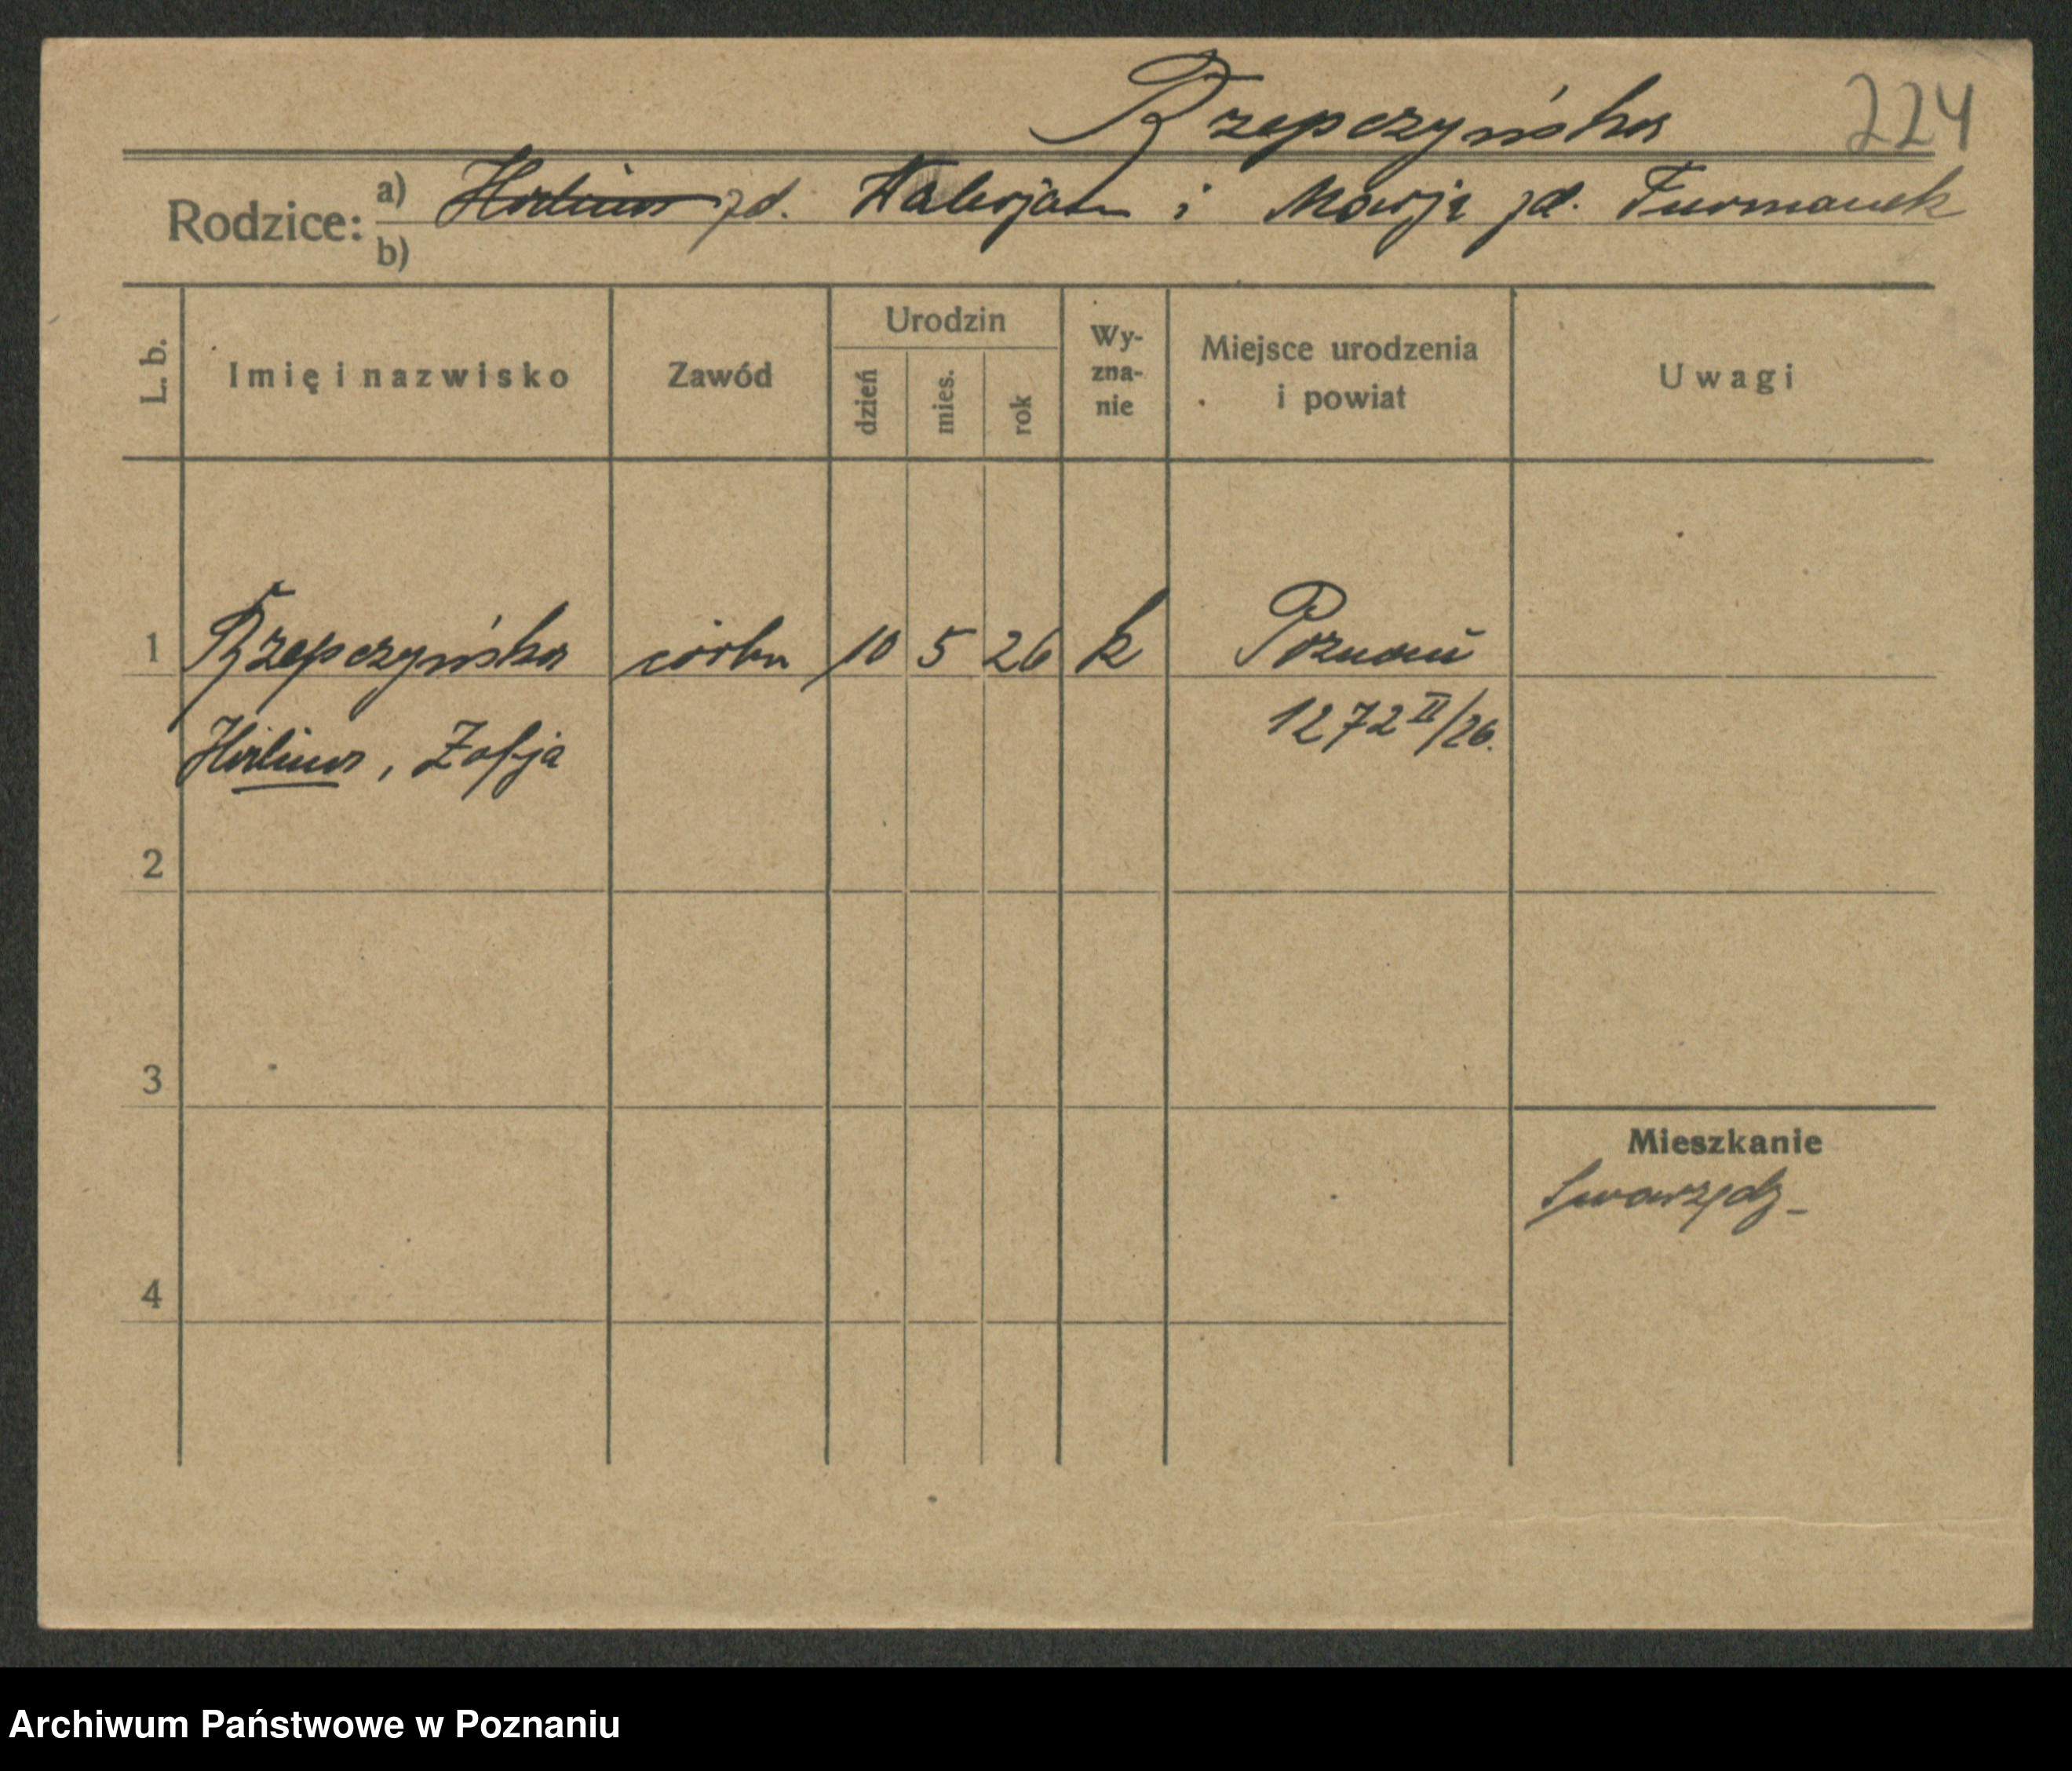 Rzepczyńska 224
Rodzice: a) Halina zd. Walerjan i Marja zd. Furmanek
b)
L. b. Imię i nazwisko Zawód Urodzin dzień mies. rok Wyznanie Miejsce urodzenia i powiat Uwagi
1 Rzepczyńska córka 10 5 26 k Poznań
Halina, Zofja 1272 II/26.
2
3
Mieszkanie
Swarzędz
4
Archiwum Państwowe w Poznaniu